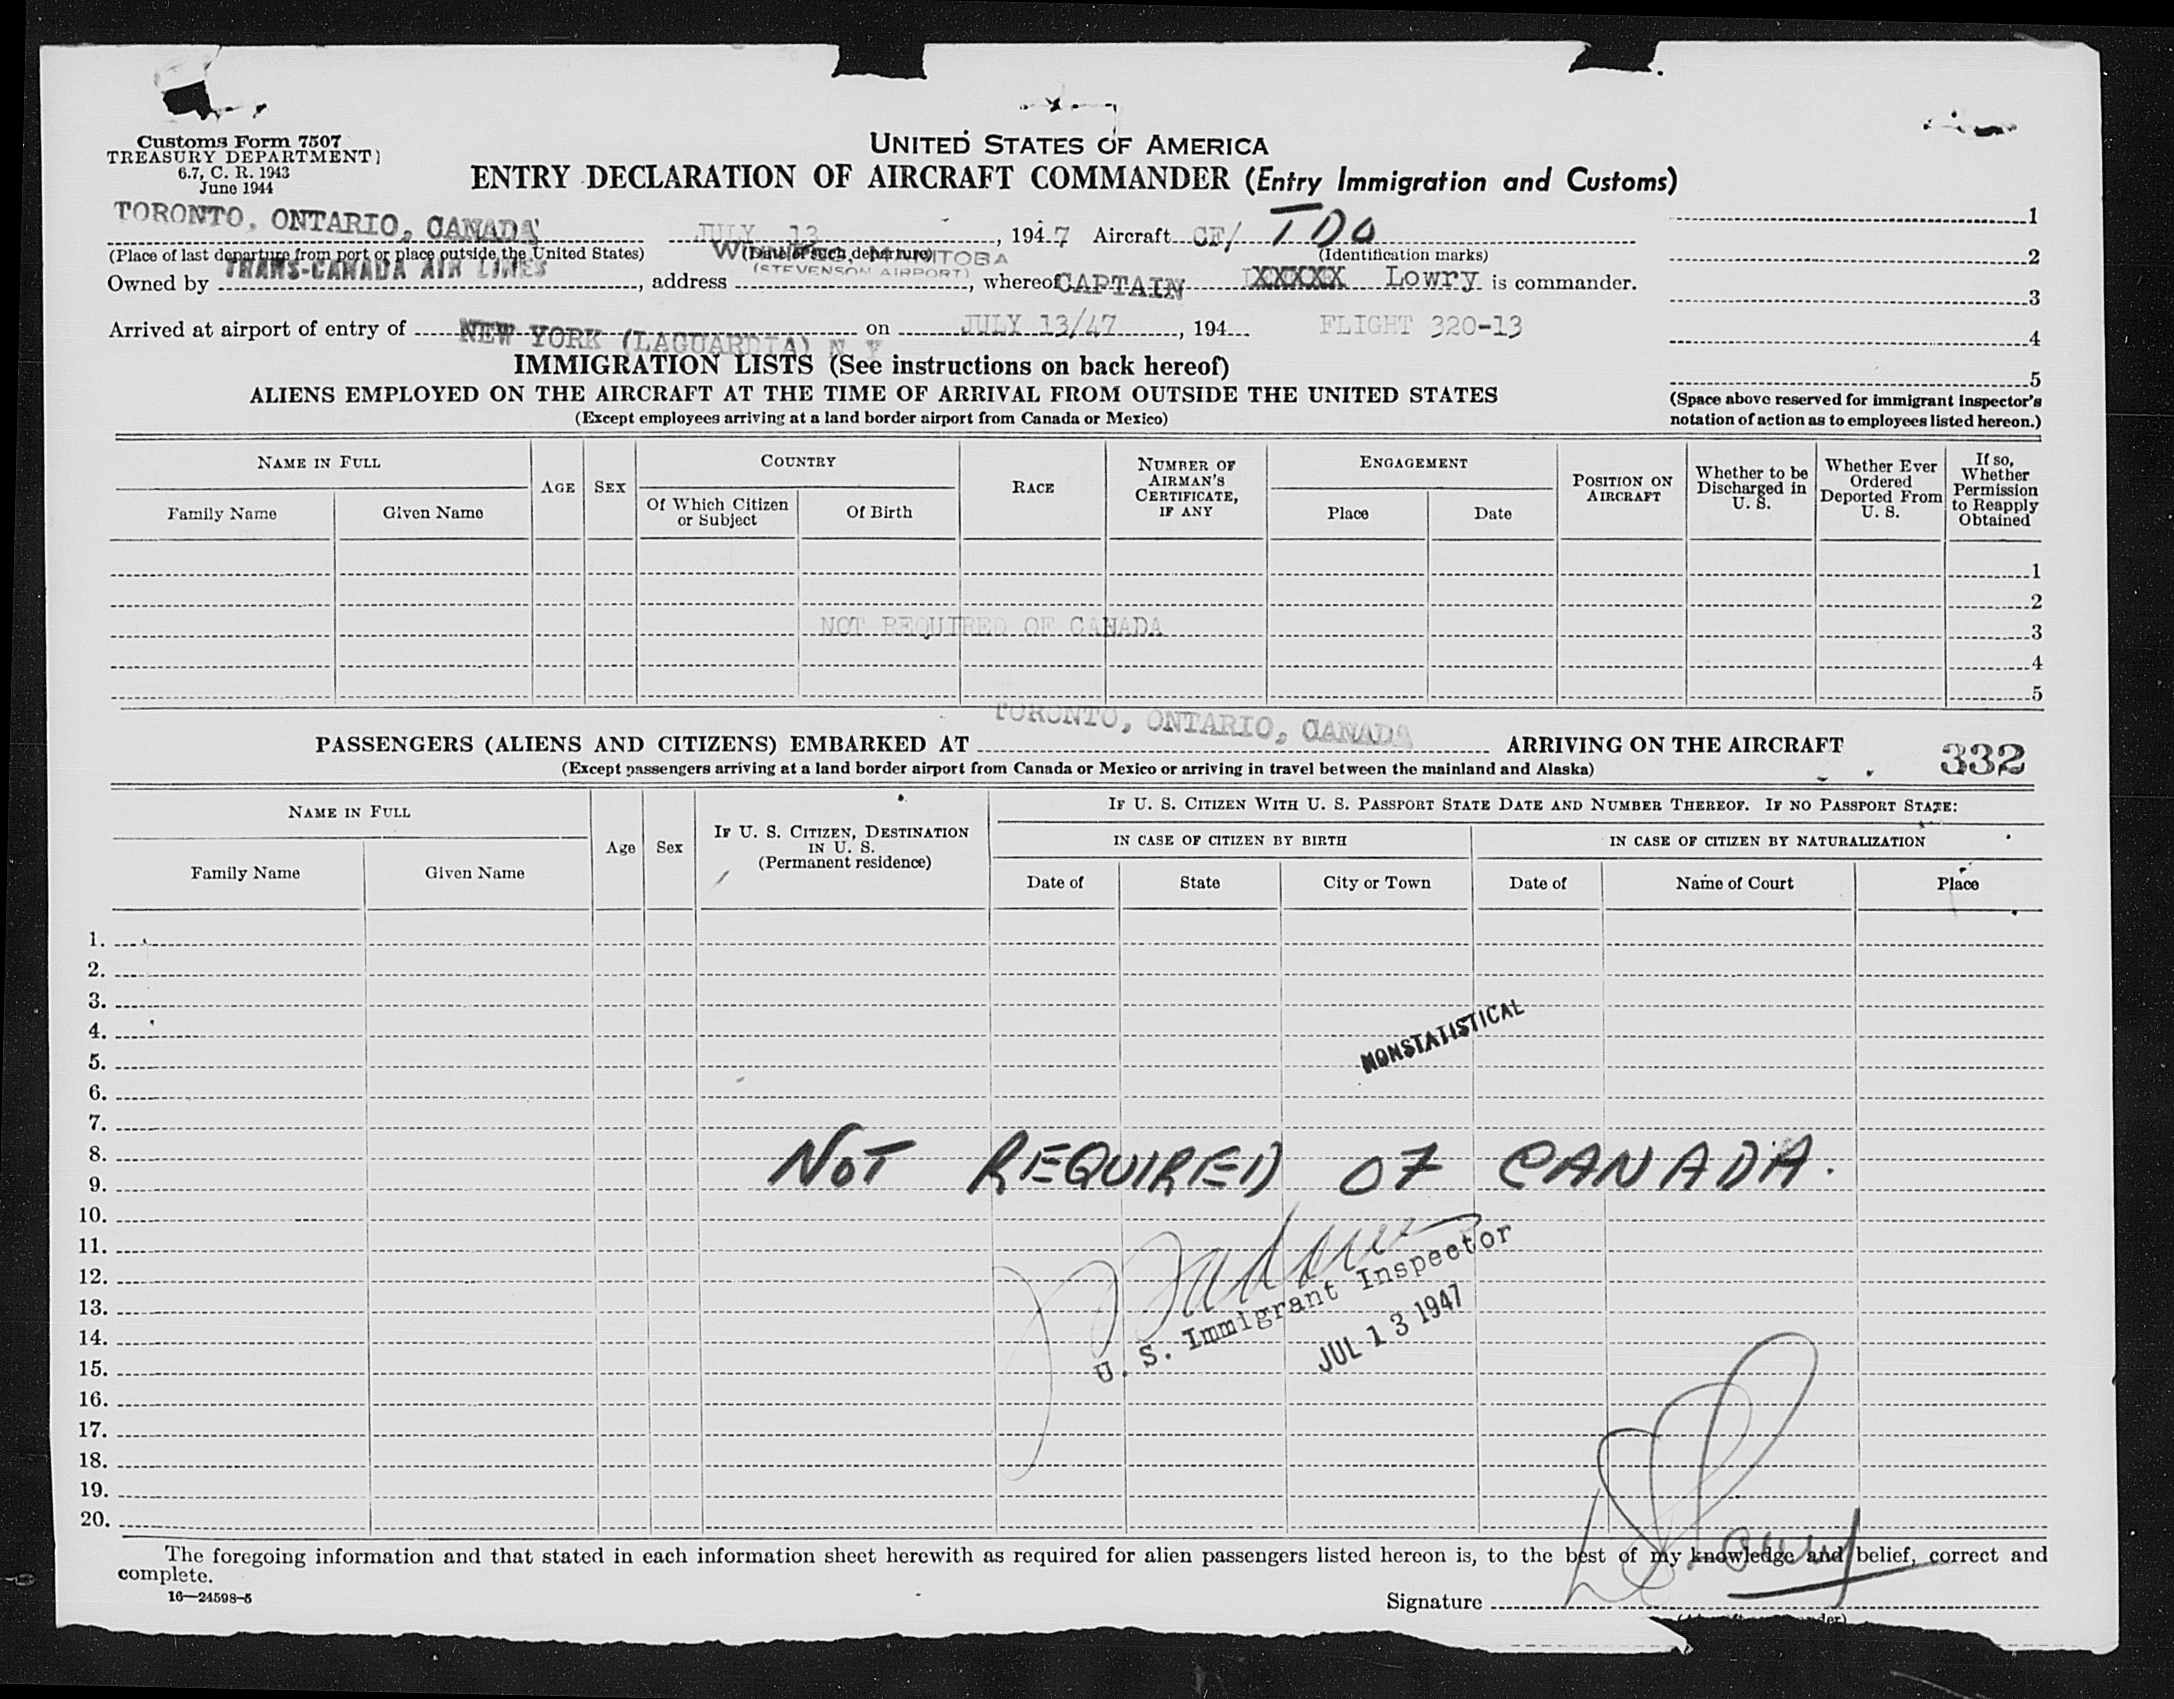 Customs Form 7507
TREASURY DEPARTMENT
6.7, C. R. 1943
June 1944
UNITED STATES OF AMERICA
ENTRY DECLARATION OF AIRCRAFT COMMANDER (Entry Immigration and Customs)
TORONTO, ONTARIO, CANADA JULY 13, 1947 Aircraft CF/ TDO 1
(Place of last departure from port or place outside the United States) (Date of such departure) (Identification marks) 2
WINNIPEG, MANITOBA
(STEVENSON AIRPORT)
Owned by TRANS-CANADA AIR LINES, address, whereof CAPTAIN XXXXX Lowry is commander. 3
Arrived at airport of entry of NEW YORK (LAGUARDIA) N Y on JULY 13/47, 194 FLIGHT 320-13 4
IMMIGRATION LISTS (See instructions on back hereof)
ALIENS EMPLOYED ON THE AIRCRAFT AT THE TIME OF ARRIVAL FROM OUTSIDE THE UNITED STATES 5
(Except employees arriving at a land border airport from Canada or Mexico)
(Space above reserved for immigrant inspector's
notation of action as to employees listed hereon.)
NAME IN FULL
Family Name Given Name
AGE
SEX
COUNTRY
Of Which Citizen or Subject
Of Birth
RACE
NUMBER OF AIRMAN'S CERTIFICATE, IF ANY
ENGAGEMENT
Place Date
POSITION ON AIRCRAFT
Whether to be Discharged in U. S.
Whether Ever Ordered Deported From U. S.
If so, Whether Permission to Reapply Obtained
1
2
NOT REQUIRED OF CANADA 3
4
5
PASSENGERS (ALIENS AND CITIZENS) EMBARKED AT TORONTO, ONTARIO, CANADA ARRIVING ON THE AIRCRAFT 332
(Except passengers arriving at a land border airport from Canada or Mexico or arriving in travel between the mainland and Alaska)
NAME IN FULL
Family Name Given Name
Age
Sex
IF U. S. CITIZEN, DESTINATION IN U. S.
(Permanent residence)
IF U. S. CITIZEN WITH U. S. PASSPORT STATE DATE AND NUMBER THEREOF. IF NO PASSPORT STATE:
IN CASE OF CITIZEN BY BIRTH IN CASE OF CITIZEN BY NATURALIZATION
Date of State City or Town Date of Name of Court Place
1.
2.
3.
4.
NONSTATISTICAL
5.
6.
7.
8.
NOT REQUIRED OF CANADA.
9.
10.
11.
12.
U. S. Immigrant Inspector
13.
JUL 13 1947
14.
15.
16.
17.
18.
19.
20.
The foregoing information and that stated in each information sheet herewith as required for alien passengers listed hereon is, to the best of my knowledge and belief, correct and
complete.
16—24598-5
Signature Lowry